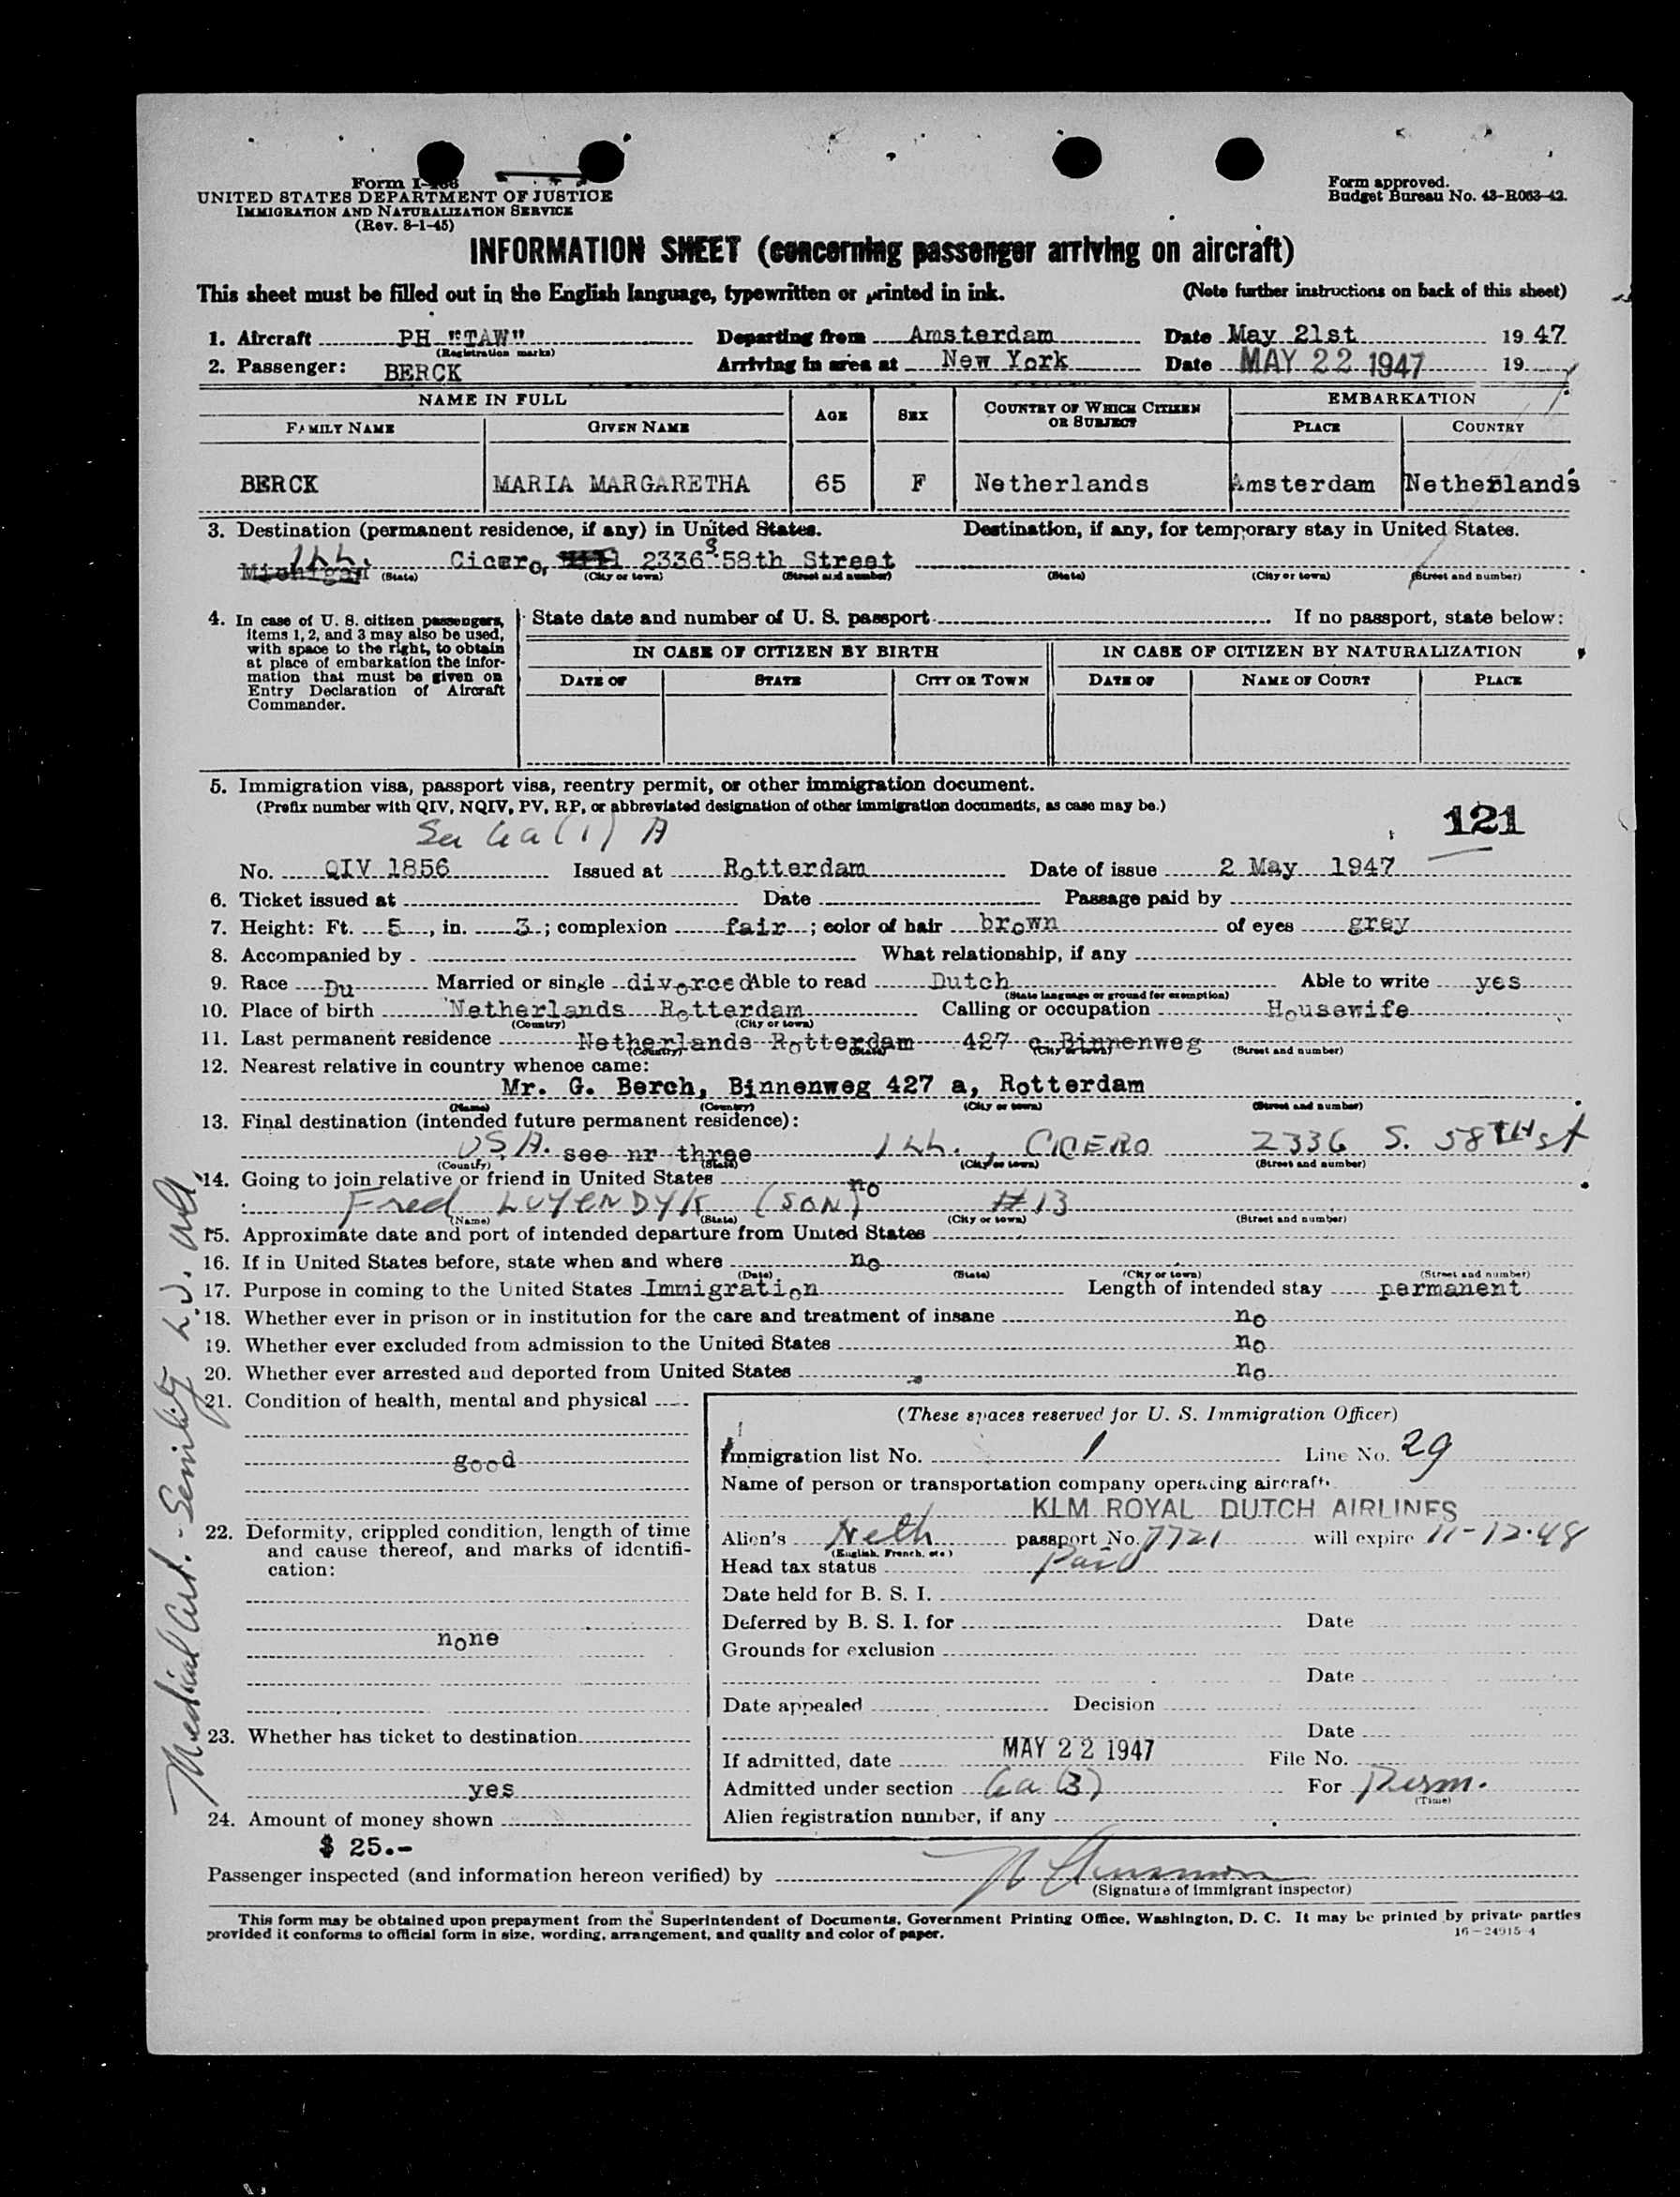 Form I-466
UNITED STATES DEPARTMENT OF JUSTICE
IMMIGRATION AND NATURALIZATION SERVICE
(Rev. 8-1-45)
Form approved.
Budget Bureau No. 43-R063-42.
INFORMATION SHEET (concerning passenger arriving on aircraft)
This sheet must be filled out in the English language, typewritten or printed in ink. (Note further instructions on back of this sheet)
1. Aircraft PH "TAW" Departing from Amsterdam Date May 21st 1947
(Registration marks)
2. Passenger: BERCK Arriving in area at New York Date MAY 22 1947 19
NAME IN FULL AGE SEX COUNTRY OF WHICH CITIZEN OR SUBJECT EMBARKATION
FAMILY NAME GIVEN NAME PLACE COUNTRY
BERCK MARIA MARGARETHA 65 F Netherlands Amsterdam Netherlands
3. Destination (permanent residence, if any) in United States. Destination, if any, for temporary stay in United States.
Michigan ILL. Cicero, 2336 S. 58th Street
(State) (City or town) (Street and number) (State) (City or town) (Street and number)
4. In case of U. S. citizen passengers, items 1, 2, and 3 may also be used, with space to the right, to obtain at place of embarkation the information that must be given on Entry Declaration of Aircraft Commander.
State date and number of U. S. passport If no passport, state below:
IN CASE OF CITIZEN BY BIRTH IN CASE OF CITIZEN BY NATURALIZATION
DATE OF STATE CITY OR TOWN DATE OF NAME OF COURT PLACE
5. Immigration visa, passport visa, reentry permit, or other immigration document.
(Prefix number with QIV, NQIV, PV, RP, or abbreviated designation of other immigration documents, as case may be.)
121
6a (1) A
No. QIV 1856 Issued at Rotterdam Date of issue 2 May 1947
6. Ticket issued at Date Passage paid by
7. Height: Ft. 5, in. 3; complexion fair; color of hair brown of eyes grey
8. Accompanied by What relationship, if any
9. Race Du Married or single divorced Able to read Dutch Able to write yes
(State language or ground for exemption)
10. Place of birth Netherlands Rotterdam Calling or occupation Housewife
(Country) (City or town)
11. Last permanent residence Netherlands Rotterdam 427 a Binnenweg
(Country) (State) (City or town) (Street and number)
12. Nearest relative in country whence came:
Mr. G. Berch, Binnenweg 427 a, Rotterdam
(Name) (Country) (City or town) (Street and number)
13. Final destination (intended future permanent residence):
U.S.A. see nr three ILL., CICERO 2336 S. 58TH st
(Country) (State) (City or town) (Street and number)
14. Going to join relative or friend in United States no
Fred LUYENDYK (SON) #13
(Name) (State) (City or town) (Street and number)
15. Approximate date and port of intended departure from United States
16. If in United States before, state when and where no
(Date) (State) (City or town) (Street and number)
17. Purpose in coming to the United States Immigration Length of intended stay permanent
18. Whether ever in prison or in institution for the care and treatment of insane no
19. Whether ever excluded from admission to the United States no
20. Whether ever arrested and deported from United States no
21. Condition of health, mental and physical
good
22. Deformity, crippled condition, length of time and cause thereof, and marks of identification:
none
23. Whether has ticket to destination
yes
24. Amount of money shown
$ 25.-
(These spaces reserved for U. S. Immigration Officer)
Immigration list No. 1 Line No. 29
Name of person or transportation company operating aircraft.
KLM ROYAL DUTCH AIRLINES
Alien's Neth passport No. 7721 will expire 11-12-48
(English, French, etc.)
Head tax status Paid
Date held for B. S. I.
Deferred by B. S. I. for Date
Grounds for exclusion
Date
Date appealed Decision
Date
If admitted, date MAY 22 1947 File No.
Admitted under section 6a (3) For Perm.
(Time)
Alien registration number, if any
Medical Cert. - Senility
Passenger inspected (and information hereon verified) by
(Signature of immigrant inspector)
This form may be obtained upon prepayment from the Superintendent of Documents, Government Printing Office, Washington, D. C. It may be printed by private parties
provided it conforms to official form in size, wording, arrangement, and quality and color of paper.
16-24915-4